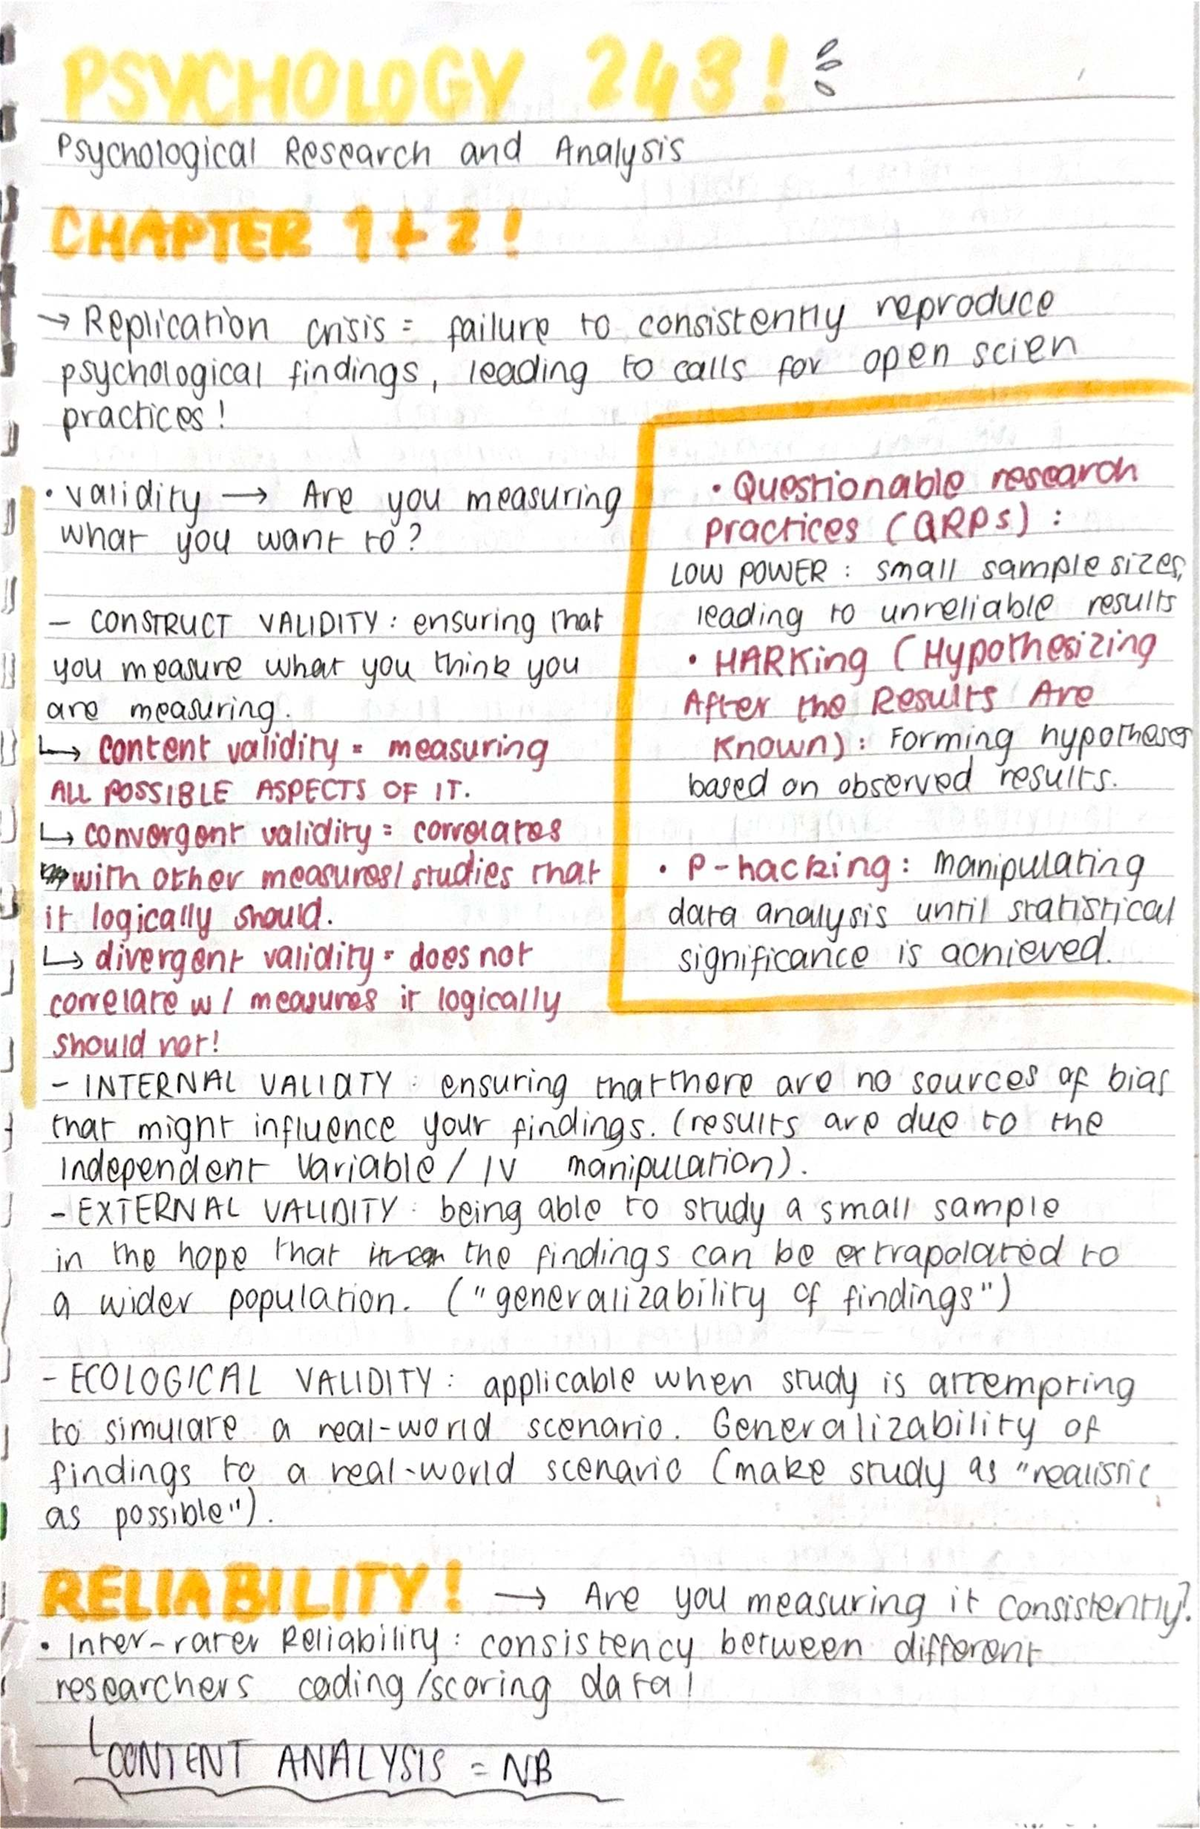 PSYCHOLOGY 243!
Psychological Research and Analysis
CHAPTER 1 + 2!
→ Replication crisis = failure to consistently reproduce
psychological findings, leading to calls for open scien
practices!
• Validity → Are you measuring
what you want to?
– CONSTRUCT VALIDITY: ensuring that
you measure what you think you
are measuring.
↳ content validity = measuring
ALL POSSIBLE ASPECTS OF IT.
↳ convergent validity = correlates
with other measures/studies that
it logically should.
↳ divergent validity = does not
correlate w/ measures it logically
should not!
• Questionable research
practices (QRPs):
LOW POWER: small sample sizes,
leading to unreliable results
• HARKing (Hypothesizing
After the Results Are
Known): Forming hypotheses
based on observed results.
• P-hacking: Manipulating
data analysis until statistical
significance is achieved.
– INTERNAL VALIDITY: ensuring that there are no sources of bias
that might influence your findings. (results are due to the
Independent Variable/IV manipulation).
– EXTERNAL VALIDITY: being able to study a small sample
in the hope that the findings can be extrapolated to
a wider population. ("generalizability of findings")
– ECOLOGICAL VALIDITY: applicable when study is attempting
to simulate a real-world scenario. Generalizability of
findings to a real-world scenario (make study as "realistic
as possible").
RELIABILITY! → Are you measuring it consistently?
• Inter-rater Reliability: consistency between different
researchers coding/scoring data!
↳ CONTENT ANALYSIS = NB